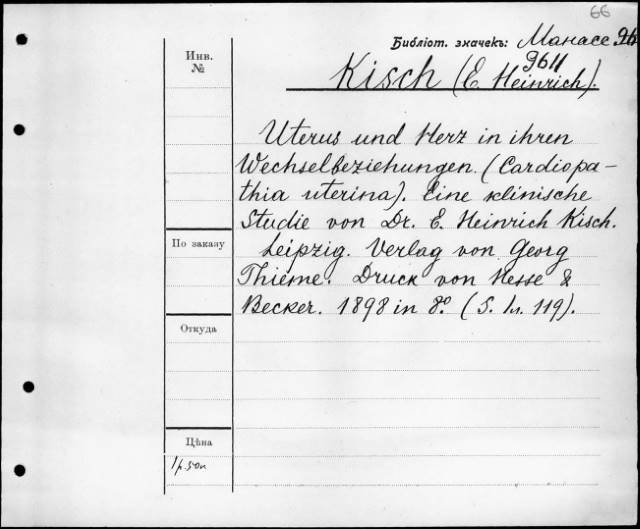 66
Библіот. значекъ: Манасе
9611
Kisch (E. Heinrich).
Инв.
№
Uterus und Herz in ihren
Wechselbeziehungen. (Cardiopa-
thia uterina). Eine klinische
Studie von Dr. E. Heinrich Kisch.
По заказу
Leipzig. Verlag von Georg
Thieme. Druck von Hesse &
Becker. 1898 in 8º. (S. 119).
Откуда
Цѣна